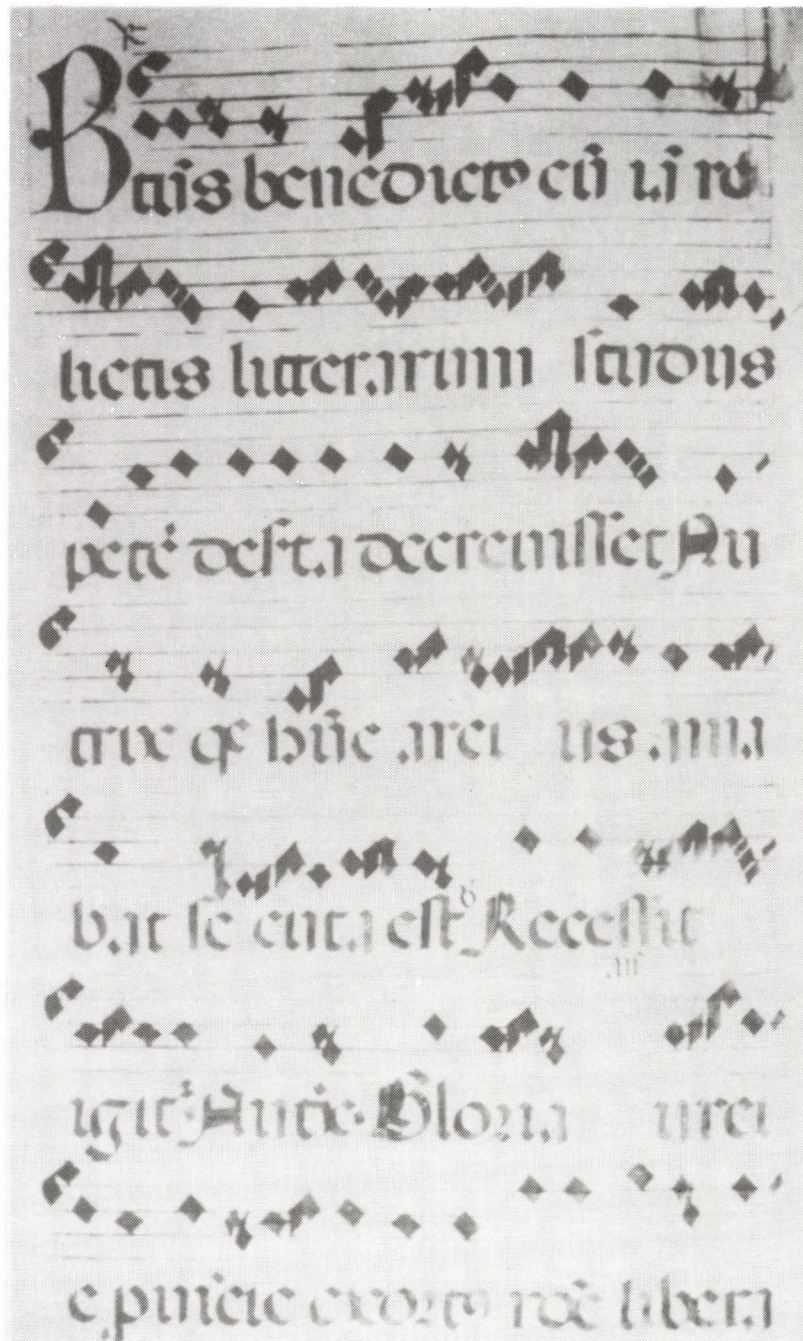 Btũs benedictꝰ cũ iã re
lictis litterarum studijs
petẽ desẽta decreuisset Nu
trix q̃ hũc arci us ama
bat se cuta est Recessit
igit̃ Nut̃ie Gloria urci
e puĩcie exortꝰ roẽ libera